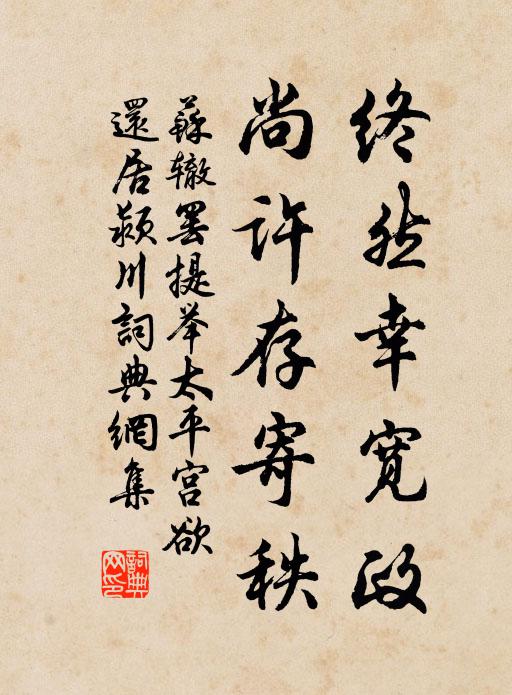 终然幸宽政
尚许存寄秩
蘇辙罢提举太平宫欲
還居颍川詞典網集
詞典网印